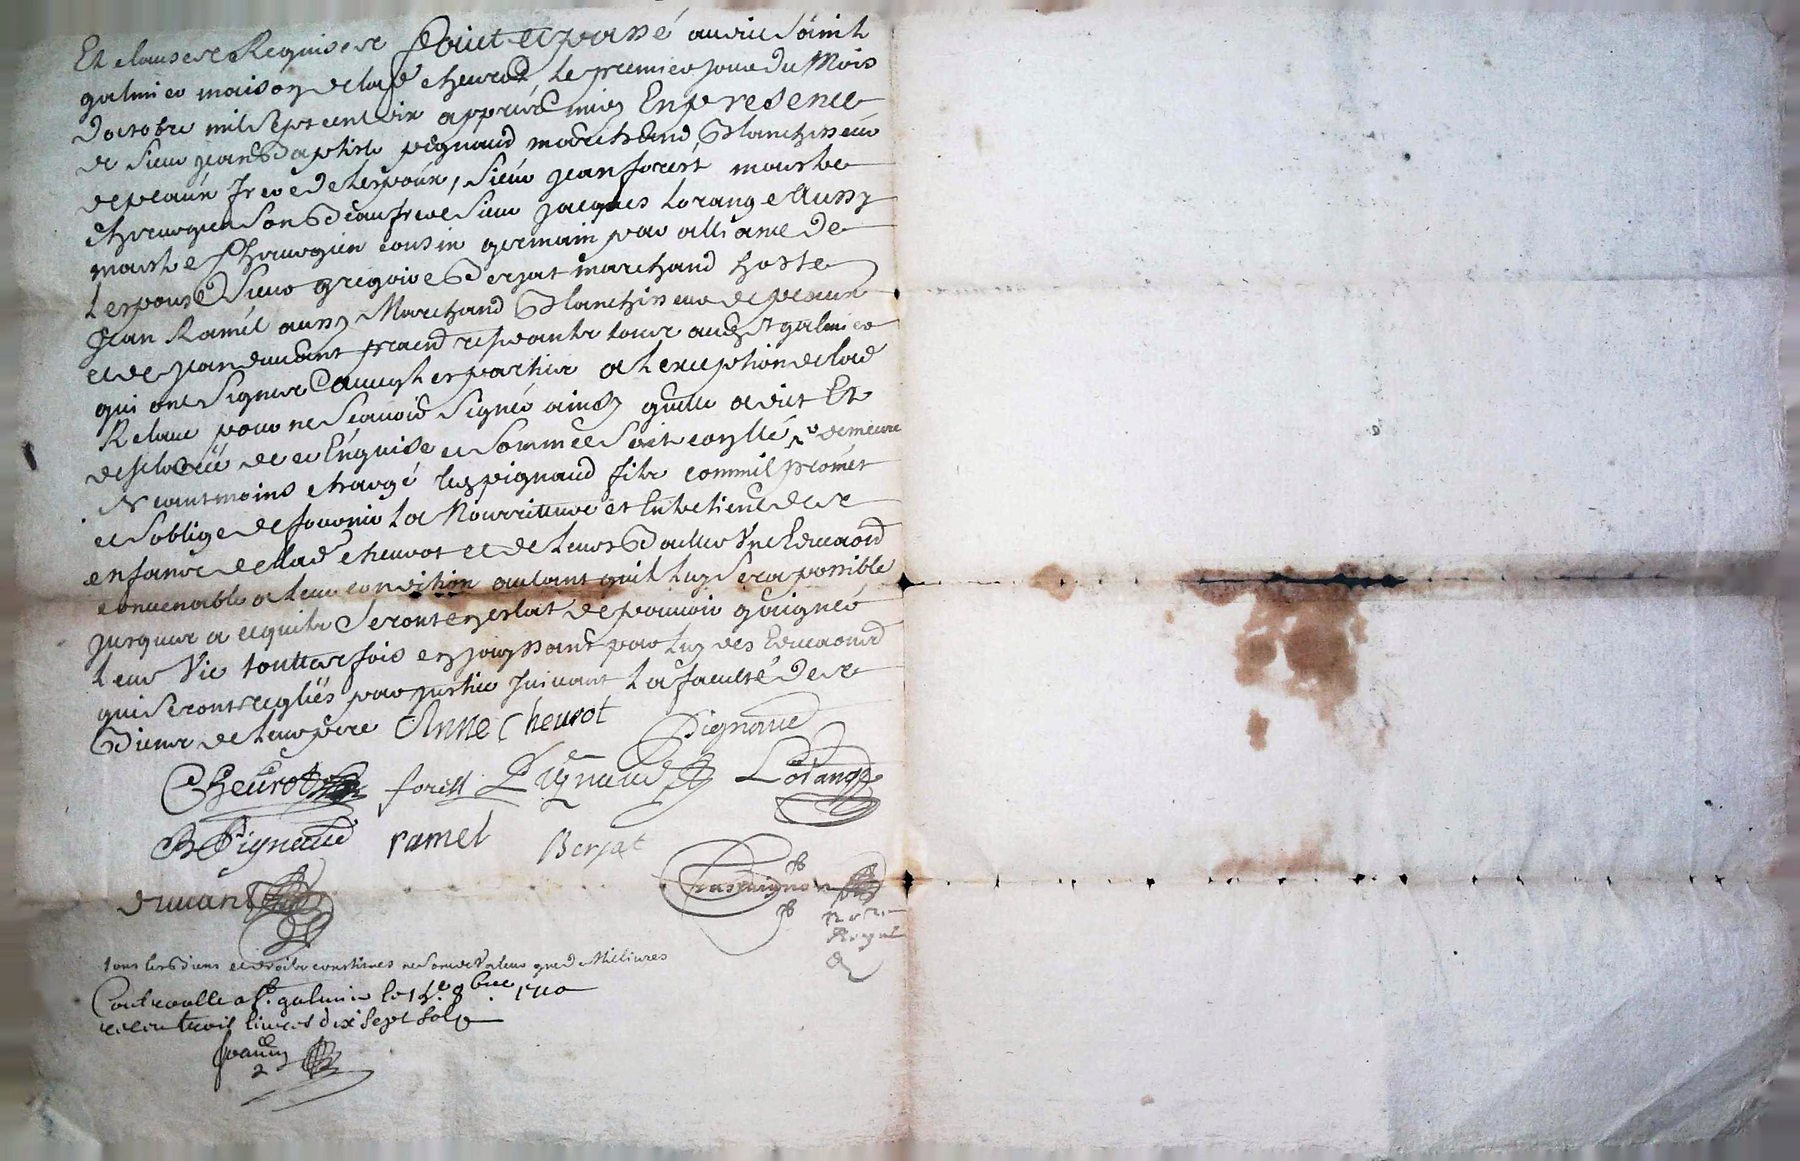 Et clauses Requises faict et passé audit Saint
galmier maison de lad cheurot le premier jour du Mois
doctobre mil sept cent dix appres midy En presence
de Sieur jean Baptiste pignaud marchand Blanchisseur
de peaux frere de lespoux, Sieur jean forest maistre
chirurgien son Beaufrere Sieur jacques Lorange Aussy
maistre Chirurgien cousin germain par alliance de
lespouse Sieur gregoire Berjat marchand hoste
jean Ramel aussy Marchand Blanchisseur de peaux
et de jean durant praend tous aud St galmier
qui ont Signes avec les parties a lexception de lad
Relave pour ne scavoir signer ainsy quelle a dit Et
de ce Enquise et sommée Soit conllé, demeure
Neantmoins chargé led pignaud fils comme il promet
et soblige de fournir la Nourriture et Entretient des
enfants de lad cheurot et de leurs Bailler Une Educaon
convenable a leur condition autant quil luy sera possible
jusques a ce quils seront en estat de pouvoir gaigner
leur Vie touttes fois en jouyssant par luy des Educaons
qui seront regliés par justice suivant la faculté des
Biens de leur pere Anne Cheurot Pignaud
Cheurot forest Pignaud Lorange
B Pignaud ramel Berjat
durant
No.re
Royal
tous les Biens et droits constitues ne sont de Valeur que de Mil livres
Controolle a St galmier le 14e 8bre 1710
receu trois livres dix sept sols